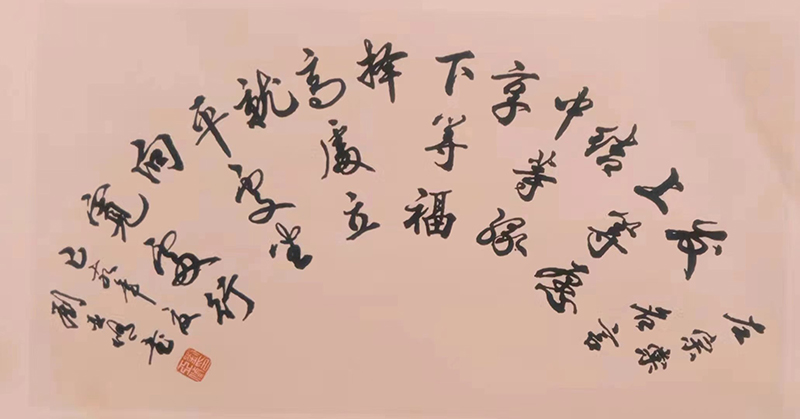 左宗棠
名言
发
上等愿
结
中等缘
享
下等福
择
高處立
就
平處坐
向
宽處行
己亥年夏
书